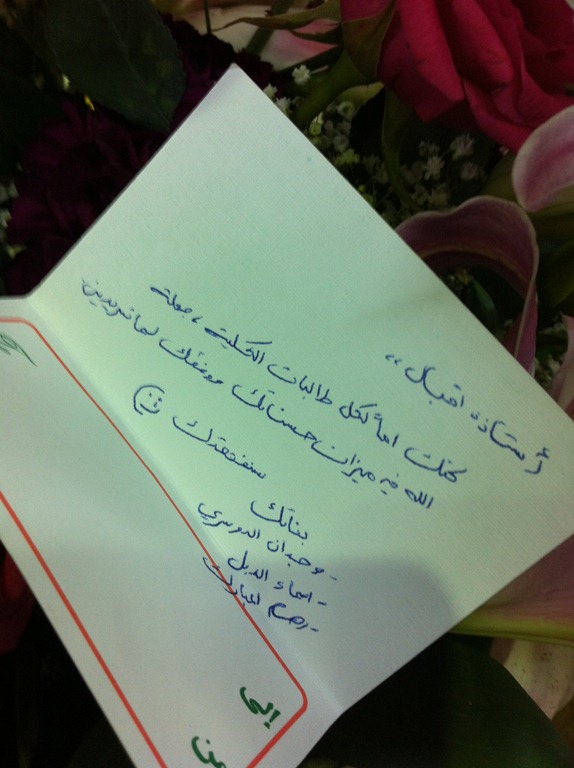 أستاذه اقبال ،،
كنت اماً لكل طالبات الكلية ، جعله
الله في ميزان حسناتك ووفقك لما تريدين
سنفتقدك :)
بناتك
- وجدان الدوسري
- اسماء الدبل
- رهام المبارك
إلى
من